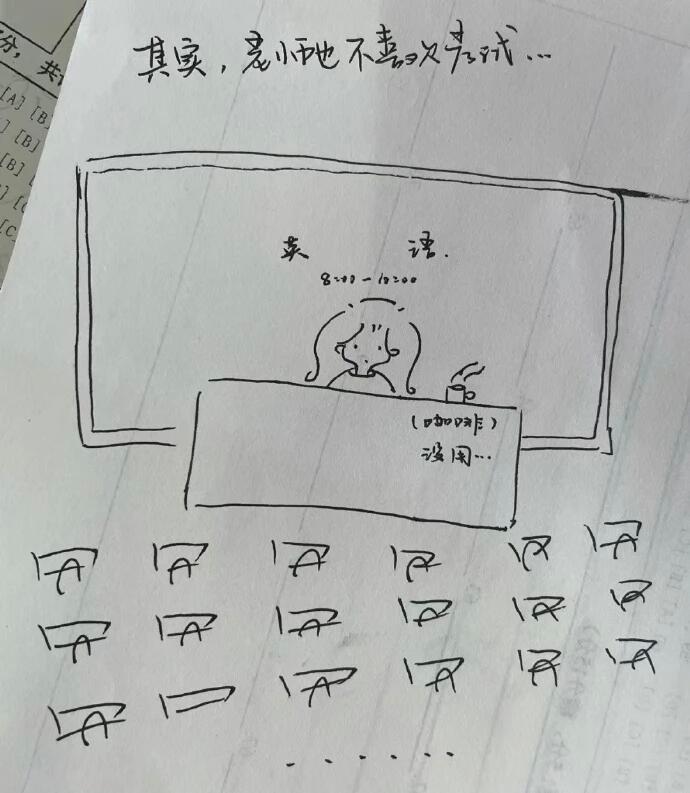 其实，老师也不喜欢考试...
英 语.
8:00-10:00
(咖啡)
没用...
分，共
[A] [B
] [B]
[B] [
[C